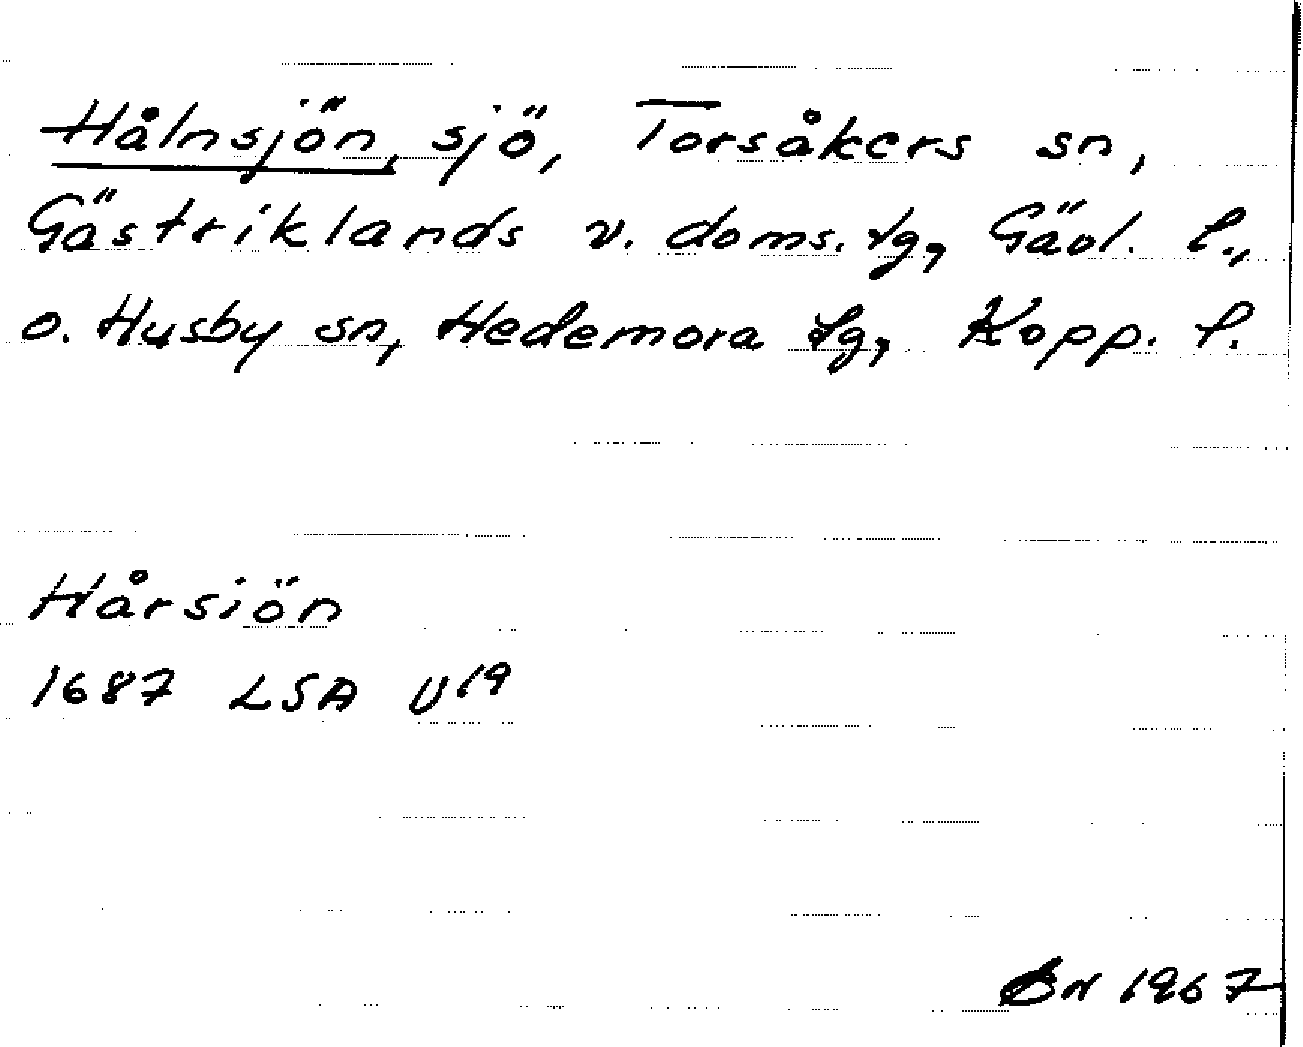 Hålnsjön, sjö, Torsåkers sn,
Gästriklands v. doms. tg, Gävl. l.,
o. Husby sn, Hedemora tg, Kopp. l.
Hårsiön
1687 LSA U19
1967